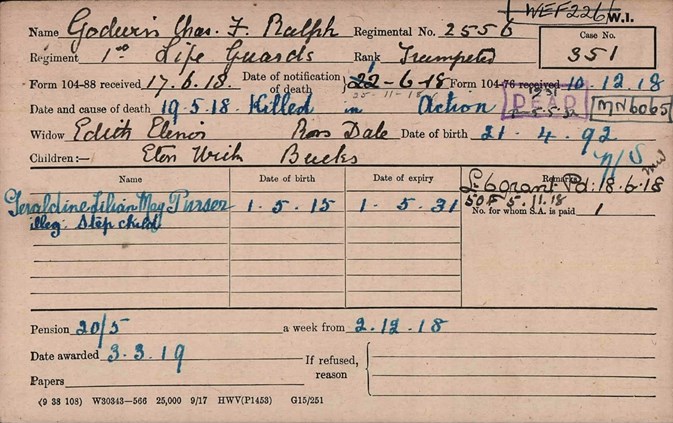 WEF226 W.I.
Name Godwin Chas. F. Ralph Regimental No. 2556
Case No.
351
Regiment 1st Life Guards Rank Trumpeter
Form 104-88 received 17.6.18 Date of notification of death 22-6-18 Form 104-76 received 10.12.18
25-11-18
Date and cause of death 19.5.18 Killed in Action DEAD MN6065
Widow Edith Elenor Ross Dale Date of birth 21.4.92
Children:— Eton Wick Bucks N/S
Name Date of birth Date of expiry Remarks
£6 grant Pd: 18.6.18
SOF 5.11.18
Geraldine Lilian May Purser 1.5.15 1.5.31 No. for whom S.A. is paid 1
illeg: Step child
Pension 20/5 a week from 2.12.18
Date awarded 3.3.19 If refused, reason
Papers
(9 38 108) W30343—566 25,000 9/17 HWV(P1453) G15/251